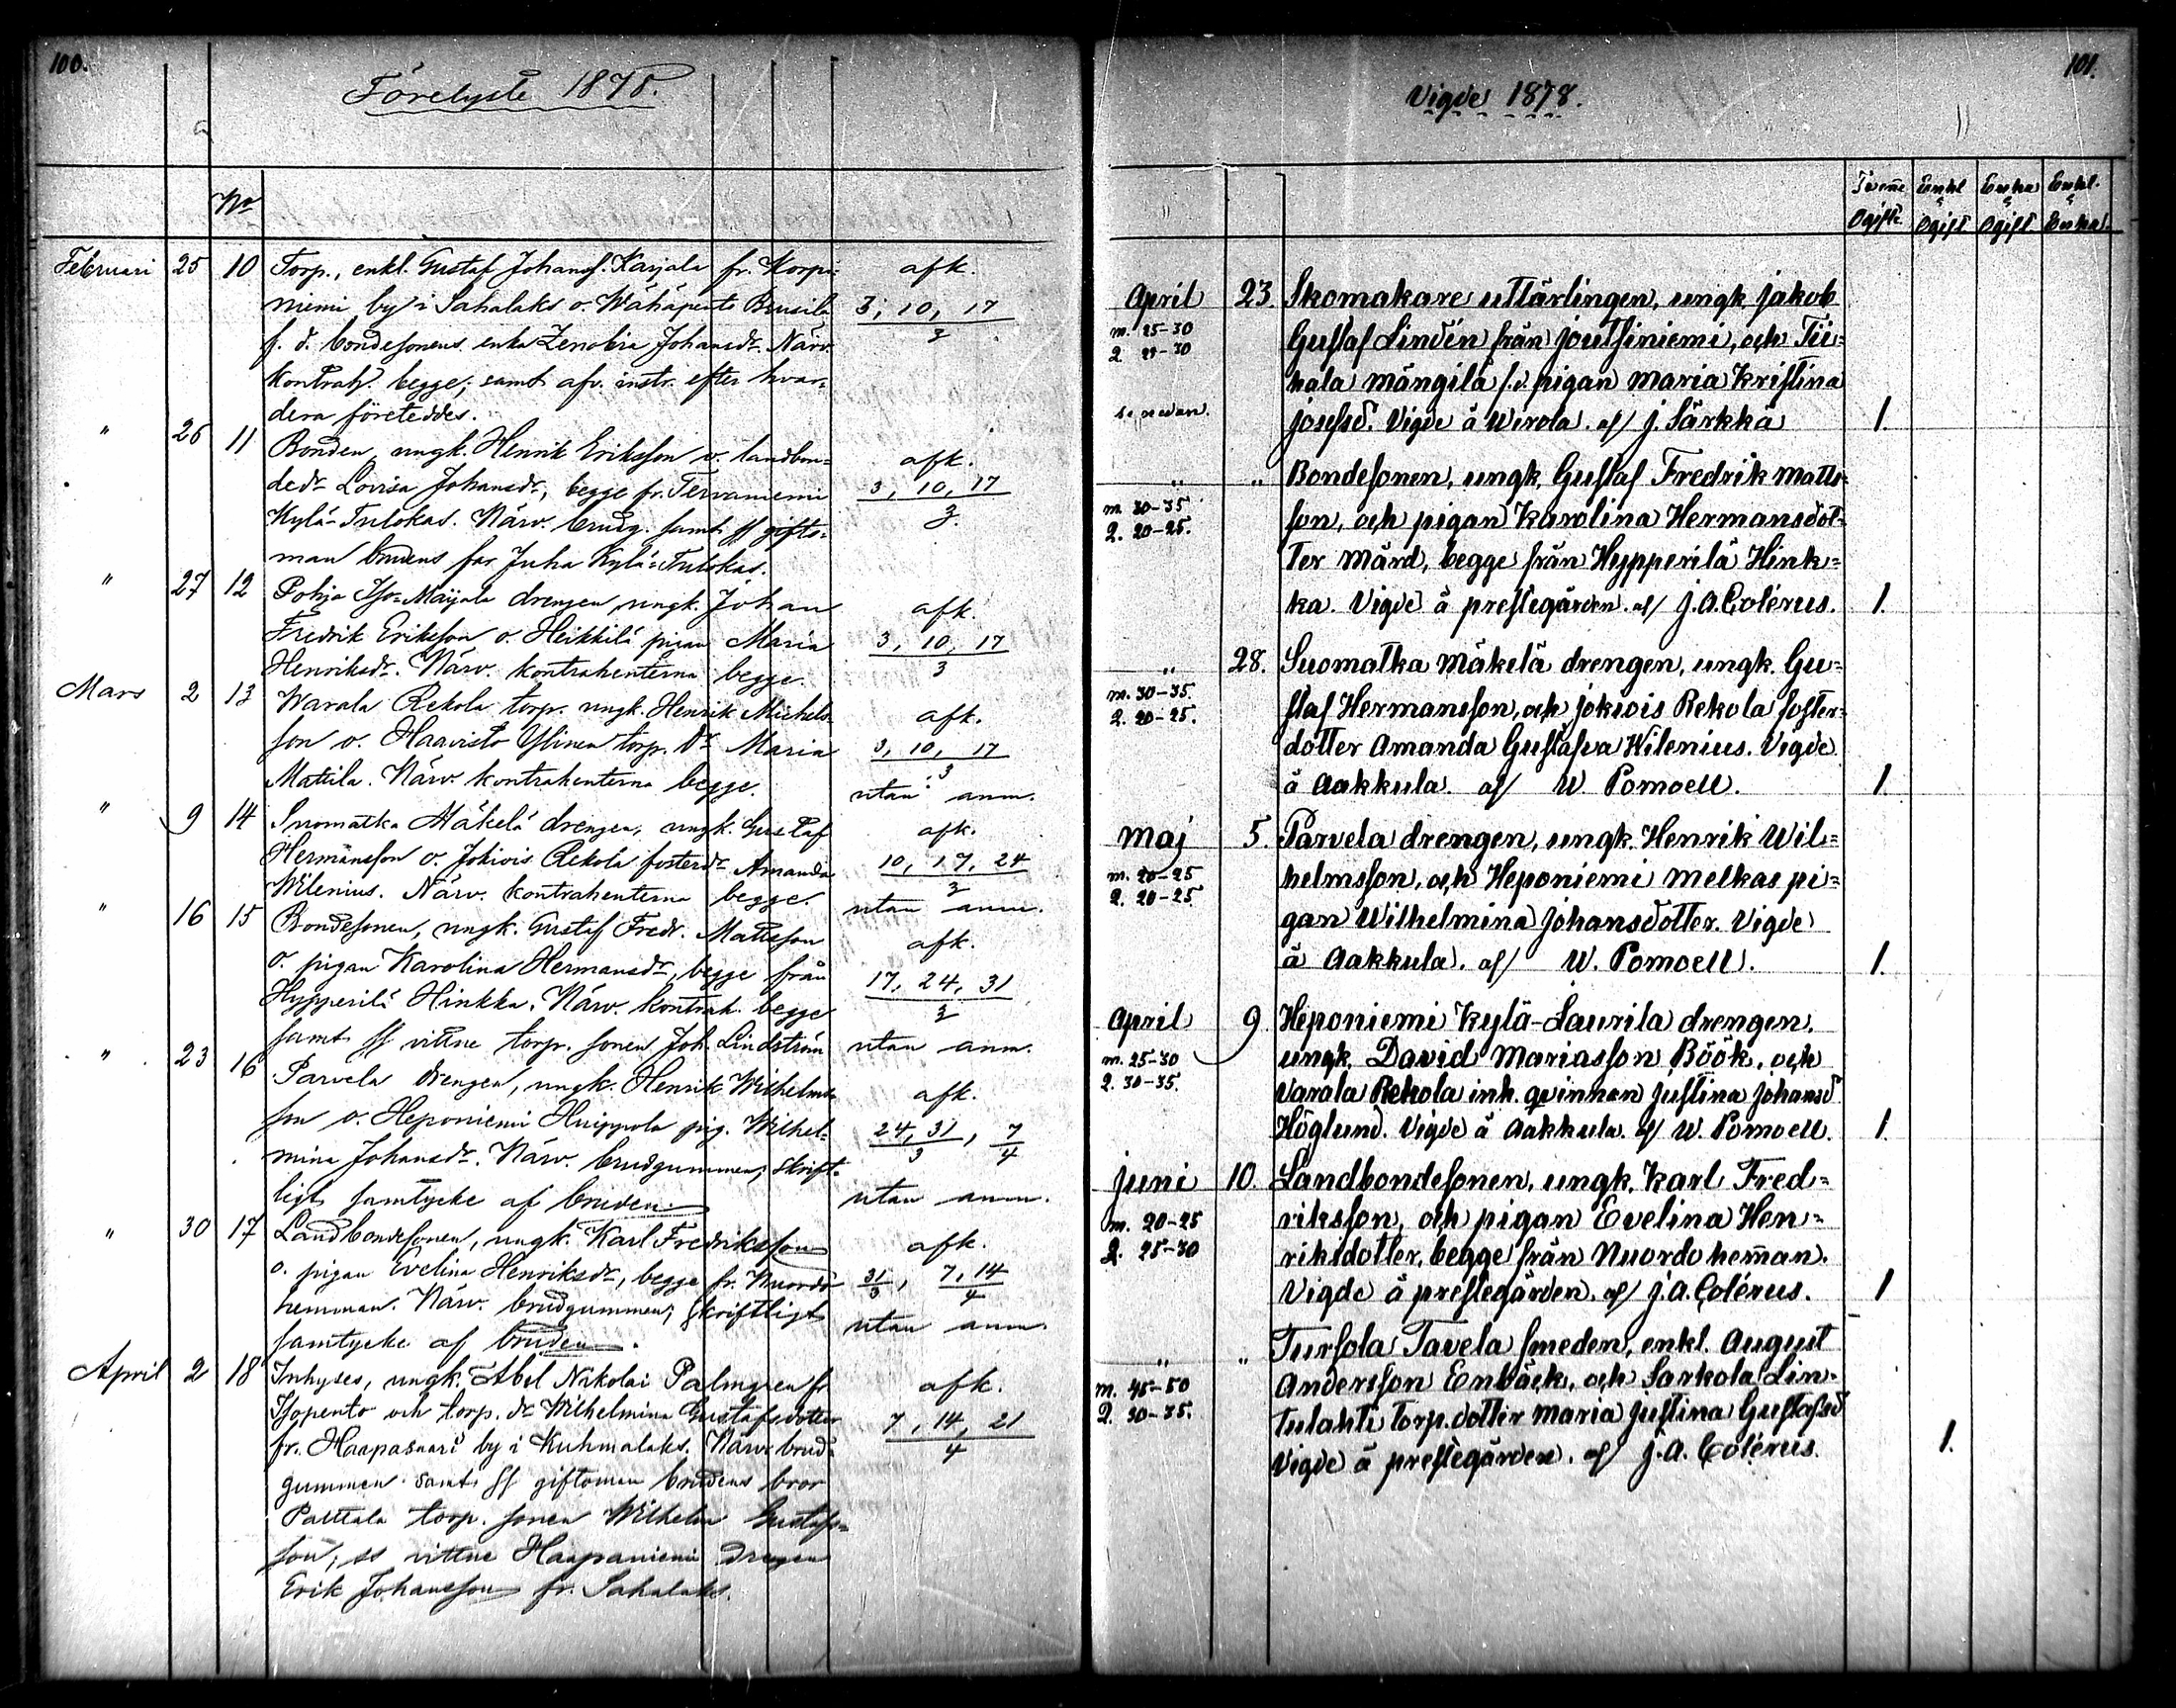 100.
Förelyste 1878.
No
Februari 25 10 Torp., enkl. Gustaf Johanss. Karjala fr. Korpi- afk.
niemi by i Sahalaks o. Wähäpento Brusila 3, 10, 17
f. d. bondesonens enka Zenobia Johansdr. Närv. 3
kontrah. begge; samt afv. instr. efter hvar-
dera företeddes.
" 26 11 Bonden, ungk. Henrik Eriksson o. landbon- afk.
dedr Lovisa Johansdr, begge fr. Tervaniemi 3, 10, 17
Kylä-Tulokas. Närv. brudg. samt ss gifto- 3.
man brudens far Juha Kylä-Tulokas.
" 27 12 Pohja Iso-Maijala drengen, ungk. Johan afk.
Fredrik Eriksson o. Heikkilä pigan Maria 3, 10, 17
Henriksdr. Närv. kontrahenterna begge. 3
Mars 2 13 Warala Rekola torp. ungk. Henrik Michels- afk.
son o. Haavisto Ylinen torp. dr Maria 3, 10, 17
Mattila. Närv. kontrahenterna begge. 3
utan anm.
" 9 14 Suomatka Mäkelä drengen, ungk. Gustaf afk.
Hermansson o. Jokiois Rekola fosterdr Amanda 10, 17, 24
Wilenius. Närv. kontrahenterna begge. 3
utan anm.
" 16 15 Bondesonen, ungk. Gustaf Fredr. Mattsson afk.
o. pigan Karolina Hermansdr, begge från 17, 24, 31
Hypperilä Hinkka. Närv. kontrah. begge 3
samt ss vittne torp. sonen Joh. Lindström utan anm.
" 23 16 Parvela drengen, ungk. Henrik Wilhelms- afk.
son o. Heponiemi Huippola pig. Wilhel- 24, 31, 7
mina Johansdr. Närv. brudgummen; skrift- 3 4
ligt samtycke af bruden. utan anm.
" 30 17 Landbondesonen, ungk. Karl Fredriksson afk.
o. pigan Evelina Henriksdr, begge fr. Nuordo 31, 7, 14
hemman. Närv. brudgummen; skriftligt 3 4
samtycke af bruden. utan anm.
April 2 18 Inhyses, ungk. Abel Nikolai Palmgren fr. afk.
Isopento och torp. dr Wilhelmina Gustafsdotter 7, 14, 21
fr. Haapasaari by i Kuhmalaks. Närv. brud- 4
gummen samt ss giftoman brudens bror
Pauttala torp. sonen Wilhelm Gustafs-
son, ss vittne Haapaniemi drengen
Erik Johansson fr. Sahalaks.
101.
Vigde 1878.
Tvenne Enkl Enka Enkl.
o o o
Ogifte. Ogift Ogift Enka.
April 23 Skomakare utlärlingen, ungk. Jakob
m. 25-30 Gustaf Lindén från Joutsiniemi, och Tii-
q. 25-30 hala Mängilä f.d. pigan Maria Kristina
se nedan. Josefsd. Vigde å Wirola. af J. Särkkä 1.
" " Bondesonen, ungk. Gustaf Fredrik Matts-
m. 30-35 son, och pigan Karolina Hermansdot-
q. 20-25. ter Mård, begge från Hypperilä Hink-
ka. Vigde å prestegården. af J. A. Colérus. 1.
" 28. Suomatka Mäkelä drengen, ungk. Gu-
m. 30-35. staf Hermansson, och Jokiois Rekola foster-
q. 20-25. dotter Amanda Gustafva Wilenius. Vigde
å Aakkula. af W. Pomoell. 1.
Maj 5. Parvela drengen, ungk. Henrik Wil-
m. 20-25 helmsson, och Heponiemi Melkas pi-
q. 20-25 gan Wilhelmina Johansdotter. Vigde
å Aakkula. af W. Pomoell. 1.
April 9 Heponiemi Kylä-Laurila drengen.
m. 25-30 ungk. David Mariasson Böök, och
q. 30-35. Varala Rekola inh. qvinnan Justina Johansd
Höglund. Vigde å Aakkula. af W. Pomoell. 1.
Juni 10 Landbondesonen, ungk. Karl Fred-
m. 20-25 riksson, och pigan Evelina Hen-
q. 25-30 riksdotter, begge från Nuordo hemman.
Vigde å prestegården. af J. A. Colérus. 1
" " Tursola Tavela smeden, enkl. August
m. 45-50 Andersson Enbäck, och Sarkola Lin-
q. 30-35. tulahti torp. dotter Maria Justina Gustafsd
Vigde å prestegården. af J. A. Colérus. 1.